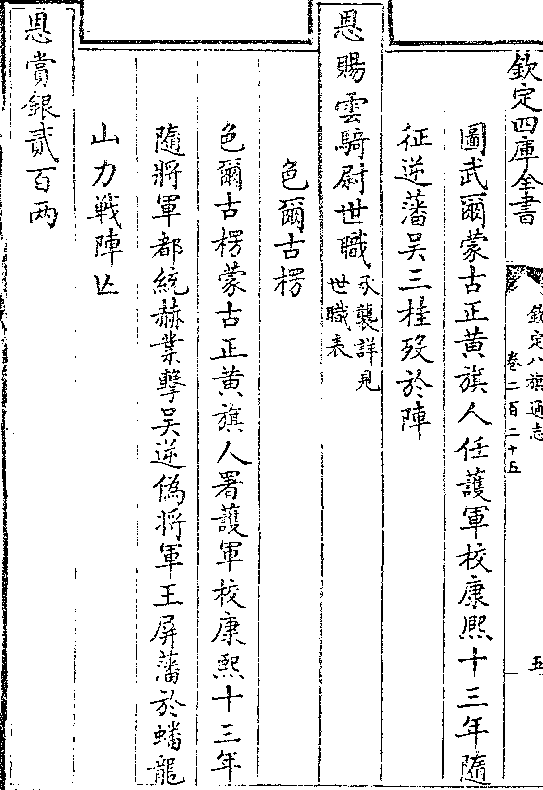 欽定四庫全書
欽定八旗通志
卷二百二十五
五
圖武爾蒙古正黄旗人任護軍校康熙十三年隨
征逆藩吴三桂歿於陣
恩賜雲騎尉世職承襲詳見
世職表
色爾古楞
色爾古楞蒙古正黄旗人署護軍校康熙十三年
隨將軍都統赫業擊吴逆偽將軍王屏藩於蟠龍
山力戰陣亡
恩賞銀貳百兩